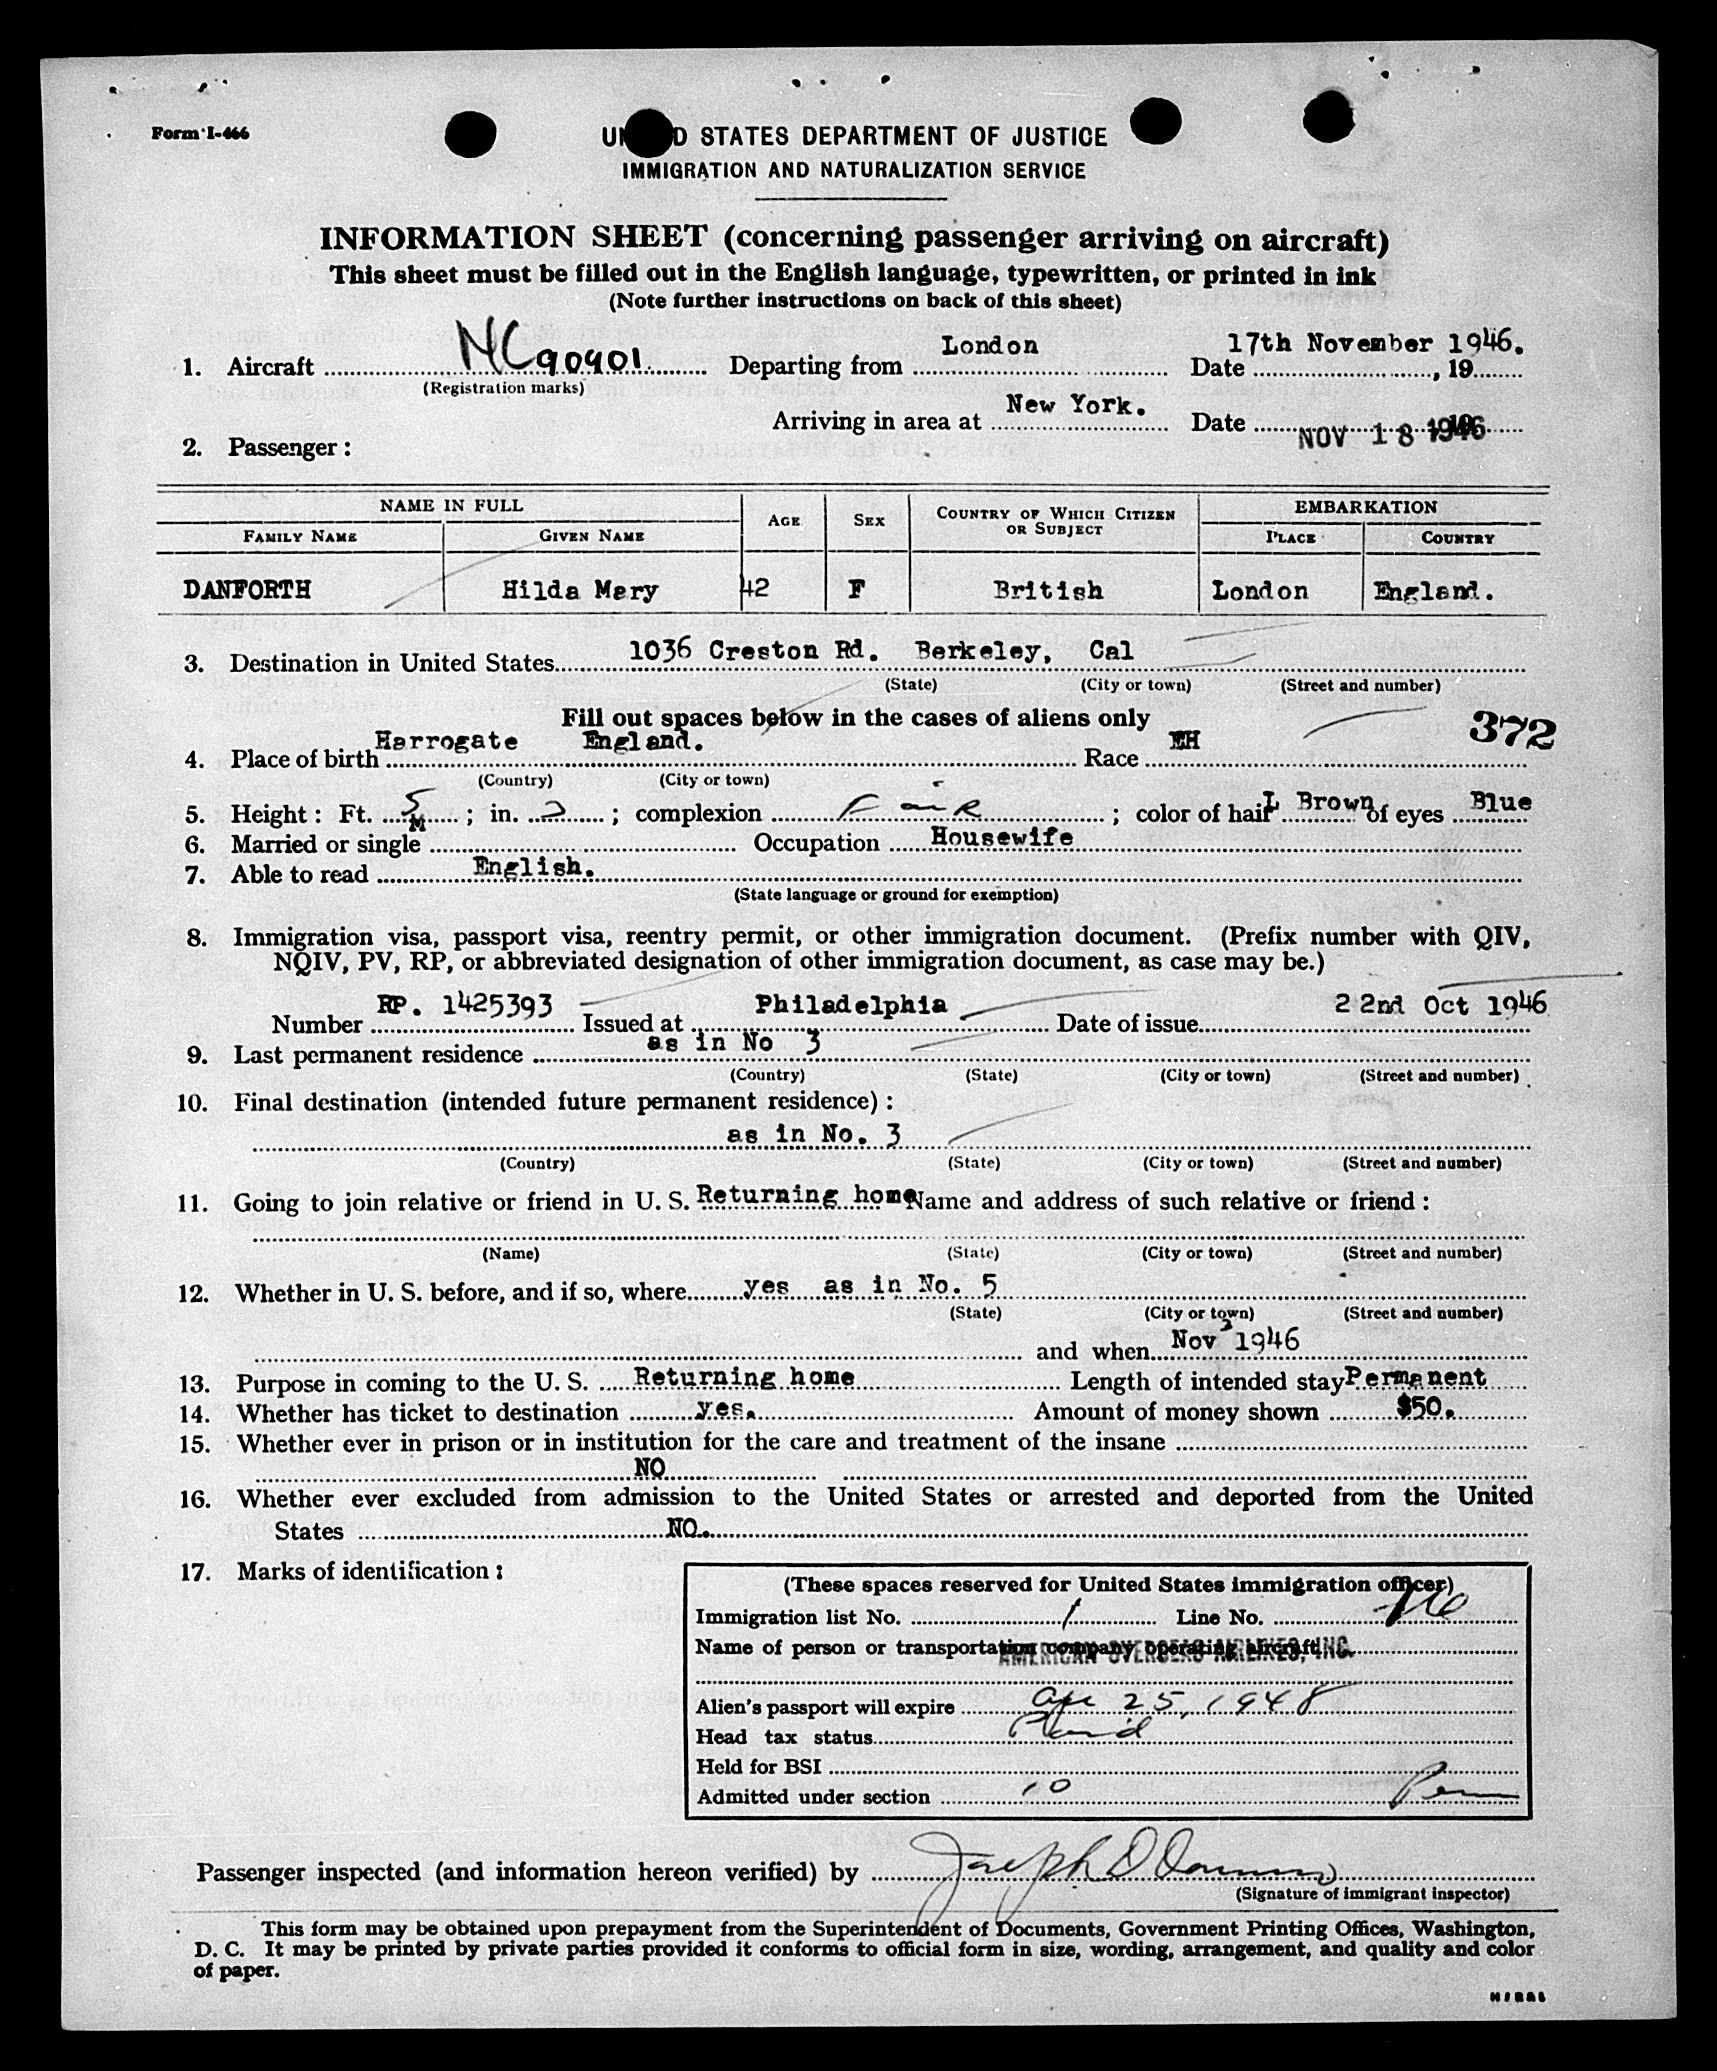 Form I-466
UNITED STATES DEPARTMENT OF JUSTICE
IMMIGRATION AND NATURALIZATION SERVICE
INFORMATION SHEET (concerning passenger arriving on aircraft)
This sheet must be filled out in the English language, typewritten, or printed in ink
(Note further instructions on back of this sheet)
1. Aircraft NC 90901 Departing from London Date 17th November 1946. , 19
(Registration marks)
Arriving in area at New York. Date NOV 18 1946
2. Passenger:
NAME IN FULL AGE SEX COUNTRY OF WHICH CITIZEN OR SUBJECT EMBARKATION
FAMILY NAME GIVEN NAME PLACE COUNTRY
DANFORTH Hilda Mary 42 F British London England.
3. Destination in United States 1036 Creston Rd. Berkeley, Cal
(State) (City or town) (Street and number)
Fill out spaces below in the cases of aliens only
372
4. Place of birth Harrogate England. Race EH
(Country) (City or town)
5. Height: Ft. 5 ; in. 2 ; complexion Fair ; color of hair L Brown of eyes Blue
6. Married or single M Occupation Housewife
7. Able to read English.
(State language or ground for exemption)
8. Immigration visa, passport visa, reentry permit, or other immigration document. (Prefix number with QIV,
NQIV, PV, RP, or abbreviated designation of other immigration document, as case may be.)
Number RP. 1425393 Issued at Philadelphia Date of issue 22nd Oct 1946
9. Last permanent residence as in No 3
(Country) (State) (City or town) (Street and number)
10. Final destination (intended future permanent residence):
as in No. 3
(Country) (State) (City or town) (Street and number)
11. Going to join relative or friend in U. S. Returning home Name and address of such relative or friend:
(Name) (State) (City or town) (Street and number)
12. Whether in U. S. before, and if so, where yes as in No. 5
(State) (City or town) (Street and number)
and when Nov 2 1946
13. Purpose in coming to the U. S. Returning home Length of intended stay Permanent
14. Whether has ticket to destination yes. Amount of money shown $50.
15. Whether ever in prison or in institution for the care and treatment of the insane
NO
16. Whether ever excluded from admission to the United States or arrested and deported from the United
States NO.
17. Marks of identification:
(These spaces reserved for United States immigration officer)
Immigration list No. 1 Line No. 16
Name of person or transportation company operating aircraft AMERICAN OVERSEAS AIRLINES, INC.
Alien's passport will expire Apr 25, 1948
Head tax status Paid
Held for BSI
Admitted under section 10 Perm
Passenger inspected (and information hereon verified) by Joseph D
(Signature of immigrant inspector)
This form may be obtained upon prepayment from the Superintendent of Documents, Government Printing Offices, Washington,
D. C. It may be printed by private parties provided it conforms to official form in size, wording, arrangement, and quality and color
of paper.